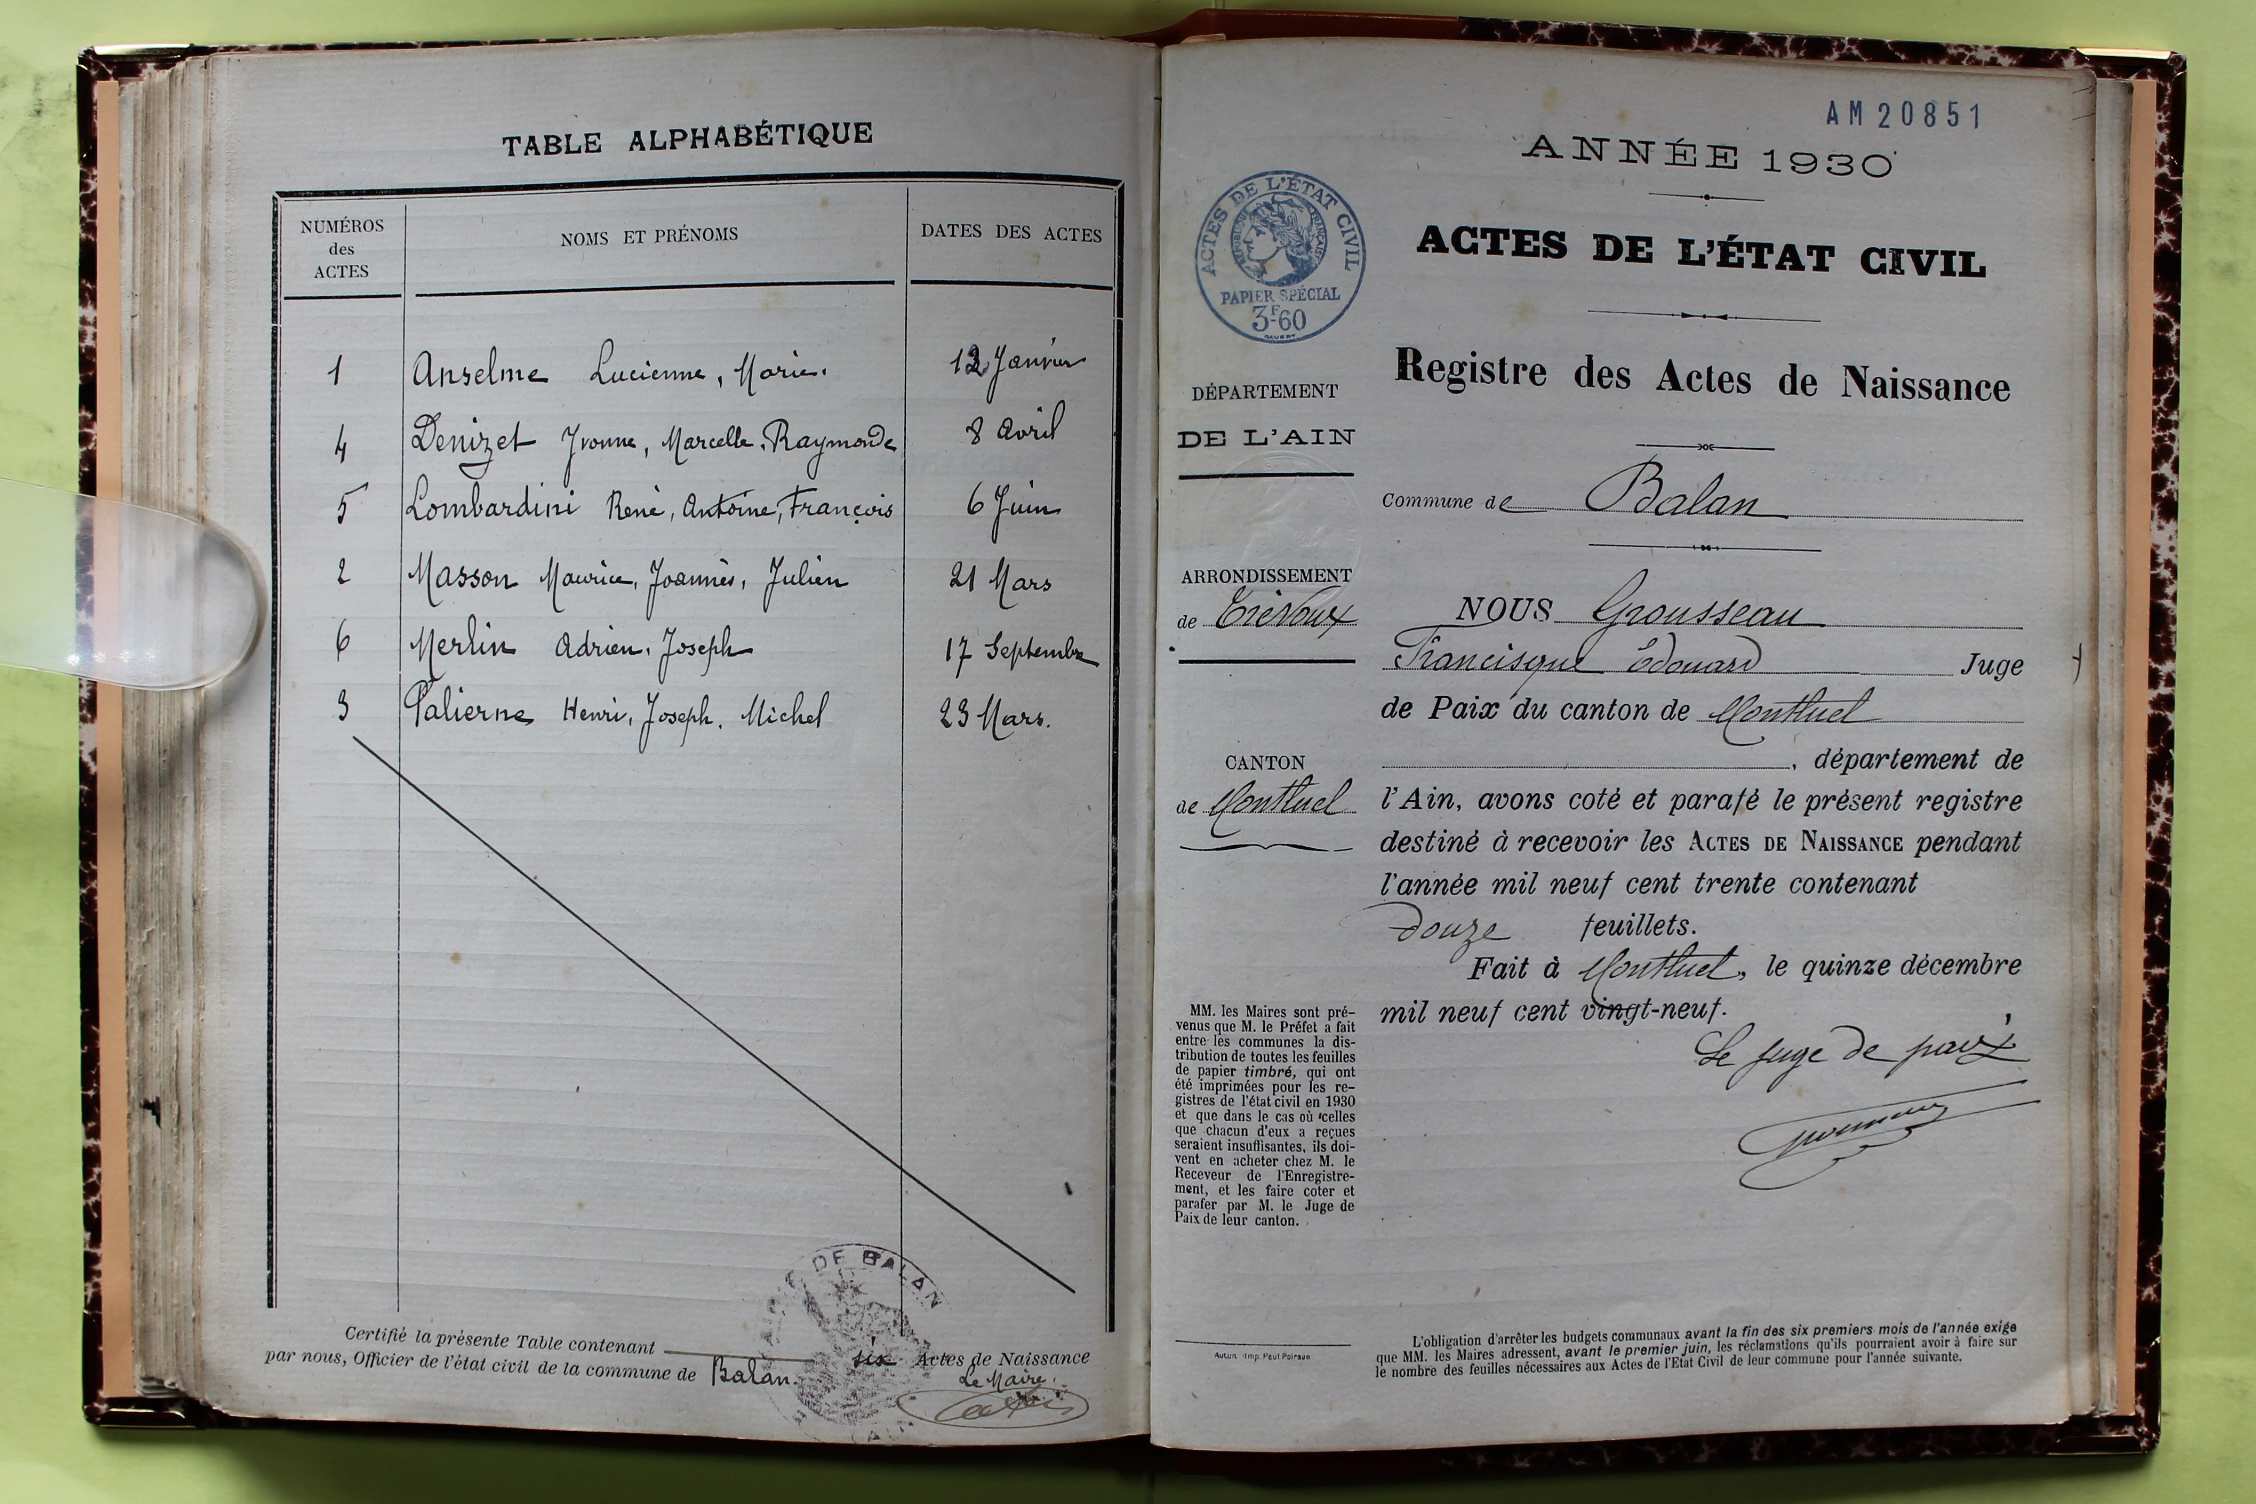 TABLE ALPHABÉTIQUE
NUMÉROS des ACTES
NOMS ET PRÉNOMS
DATES DES ACTES
1 Anselme Lucienne, Marie. 12 Janvier
4 Denizet Yvonne, Marcelle, Raymonde 8 Avril
5 Lombardini René, Antoine, François 6 Juin
2 Masson Maurice, Joannès, Julien 21 Mars
6 Merlin Adrien, Joseph 17 Septembre
3 Palierne Henri, Joseph, Michel 23 Mars.
Certifié la présente Table contenant six Actes de Naissance
par nous, Officier de l'état civil de la commune de Balan.
Le Maire.
DE BALAN
AM20851
ANNÉE 1930
ACTES DE L'ÉTAT CIVIL
RÉPUBLIQUE FRANÇAISE
PAPIER SPÉCIAL
3F60
ACTES DE L'ÉTAT CIVIL
Registre des Actes de Naissance
DÉPARTEMENT
DE L'AIN
Commune de Balan
ARRONDISSEMENT
de Trévoux
CANTON
de Montluel
NOUS Grousseau
Francisque Edouard Juge
de Paix du canton de Montluel
, département de
l'Ain, avons coté et parafé le présent registre
destiné à recevoir les ACTES DE NAISSANCE pendant
l'année mil neuf cent trente contenant
douze feuillets.
Fait à Montluel, le quinze décembre
mil neuf cent vingt-neuf.
Le juge de paix
MM. les Maires sont pré-
venus que M. le Préfet a fait
entre les communes la dis-
tribution de toutes les feuilles
de papier timbré, qui ont
été imprimées pour les re-
gistres de l'état civil en 1930
et que dans le cas où celles
que chacun d'eux a reçues
seraient insuffisantes, ils doi-
vent en acheter chez M. le
Receveur de l'Enregistre-
ment, et les faire coter et
parafer par M. le Juge de
Paix de leur canton.
Autun. Imp. Paul Poirson
L'obligation d'arrêter les budgets communaux avant la fin des six premiers mois de l'année exige
que MM. les Maires adressent, avant le premier juin, les réclamations qu'ils pourraient avoir à faire sur
le nombre des feuilles nécessaires aux Actes de l'Etat Civil de leur commune pour l'année suivante.